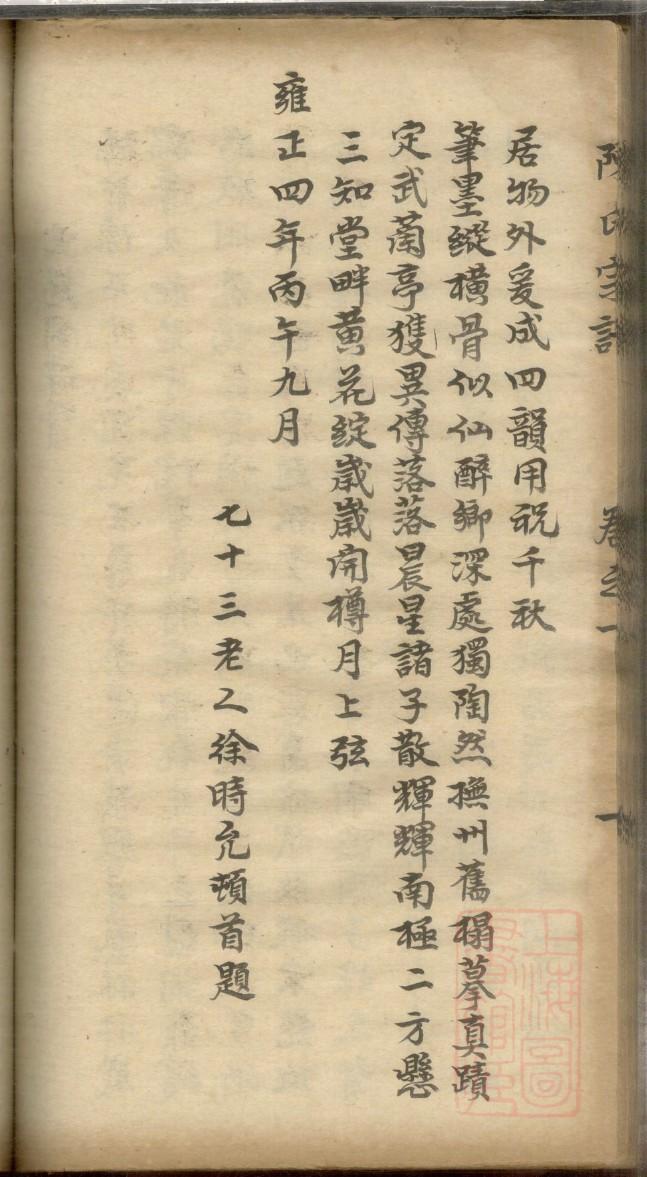 陳氏宗譜 卷之一 十
居物外爰成四韻用祝千秋
筆墨縱橫骨似仙醉鄉深處獨陶然撫州舊榻摹真蹟
定武蘭亭獲異傳落落晨星諸子散輝輝南極二方懸
三知堂畔黃花綻歲歲開樽月上弦
雍正四年丙午九月
七十三老人徐時允頓首題
上海圖書館藏